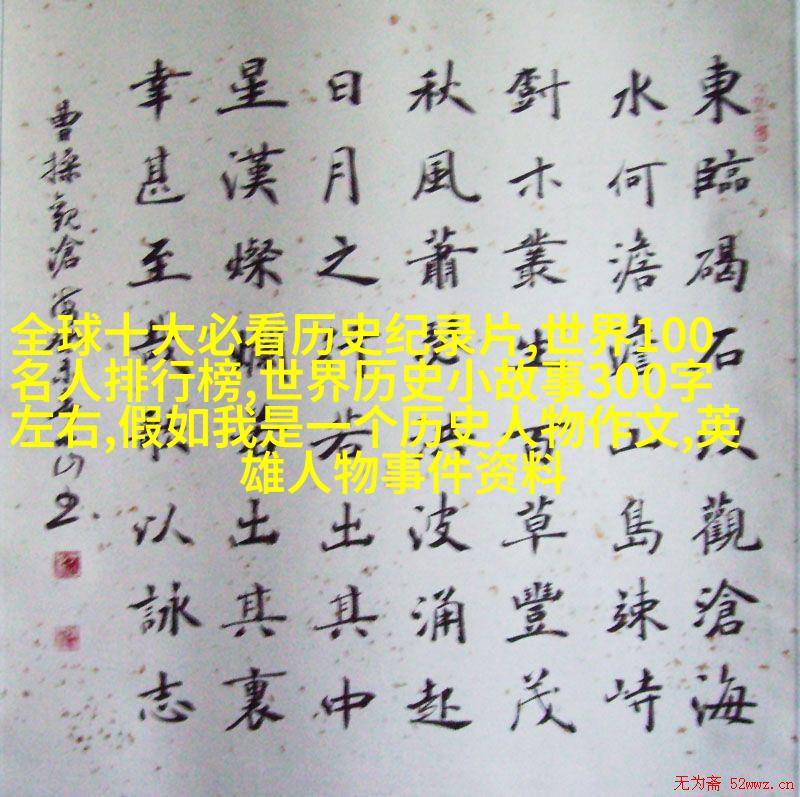 東臨碣石以觀滄海
水何澹澹山島竦峙
尌木叢生百草豐茂
秋風蕭瑟波涌起
日月之行若出其中
星漢燦爛若出其裏
幸甚至哉以詠志
曹操觀滄
全球十大必看历史纪录片,世界100
名人排行榜,世界历史小故事300字
左右,假如我是一个历史人物作文,英
雄人物事件资料
无为斋 52wwz.cn